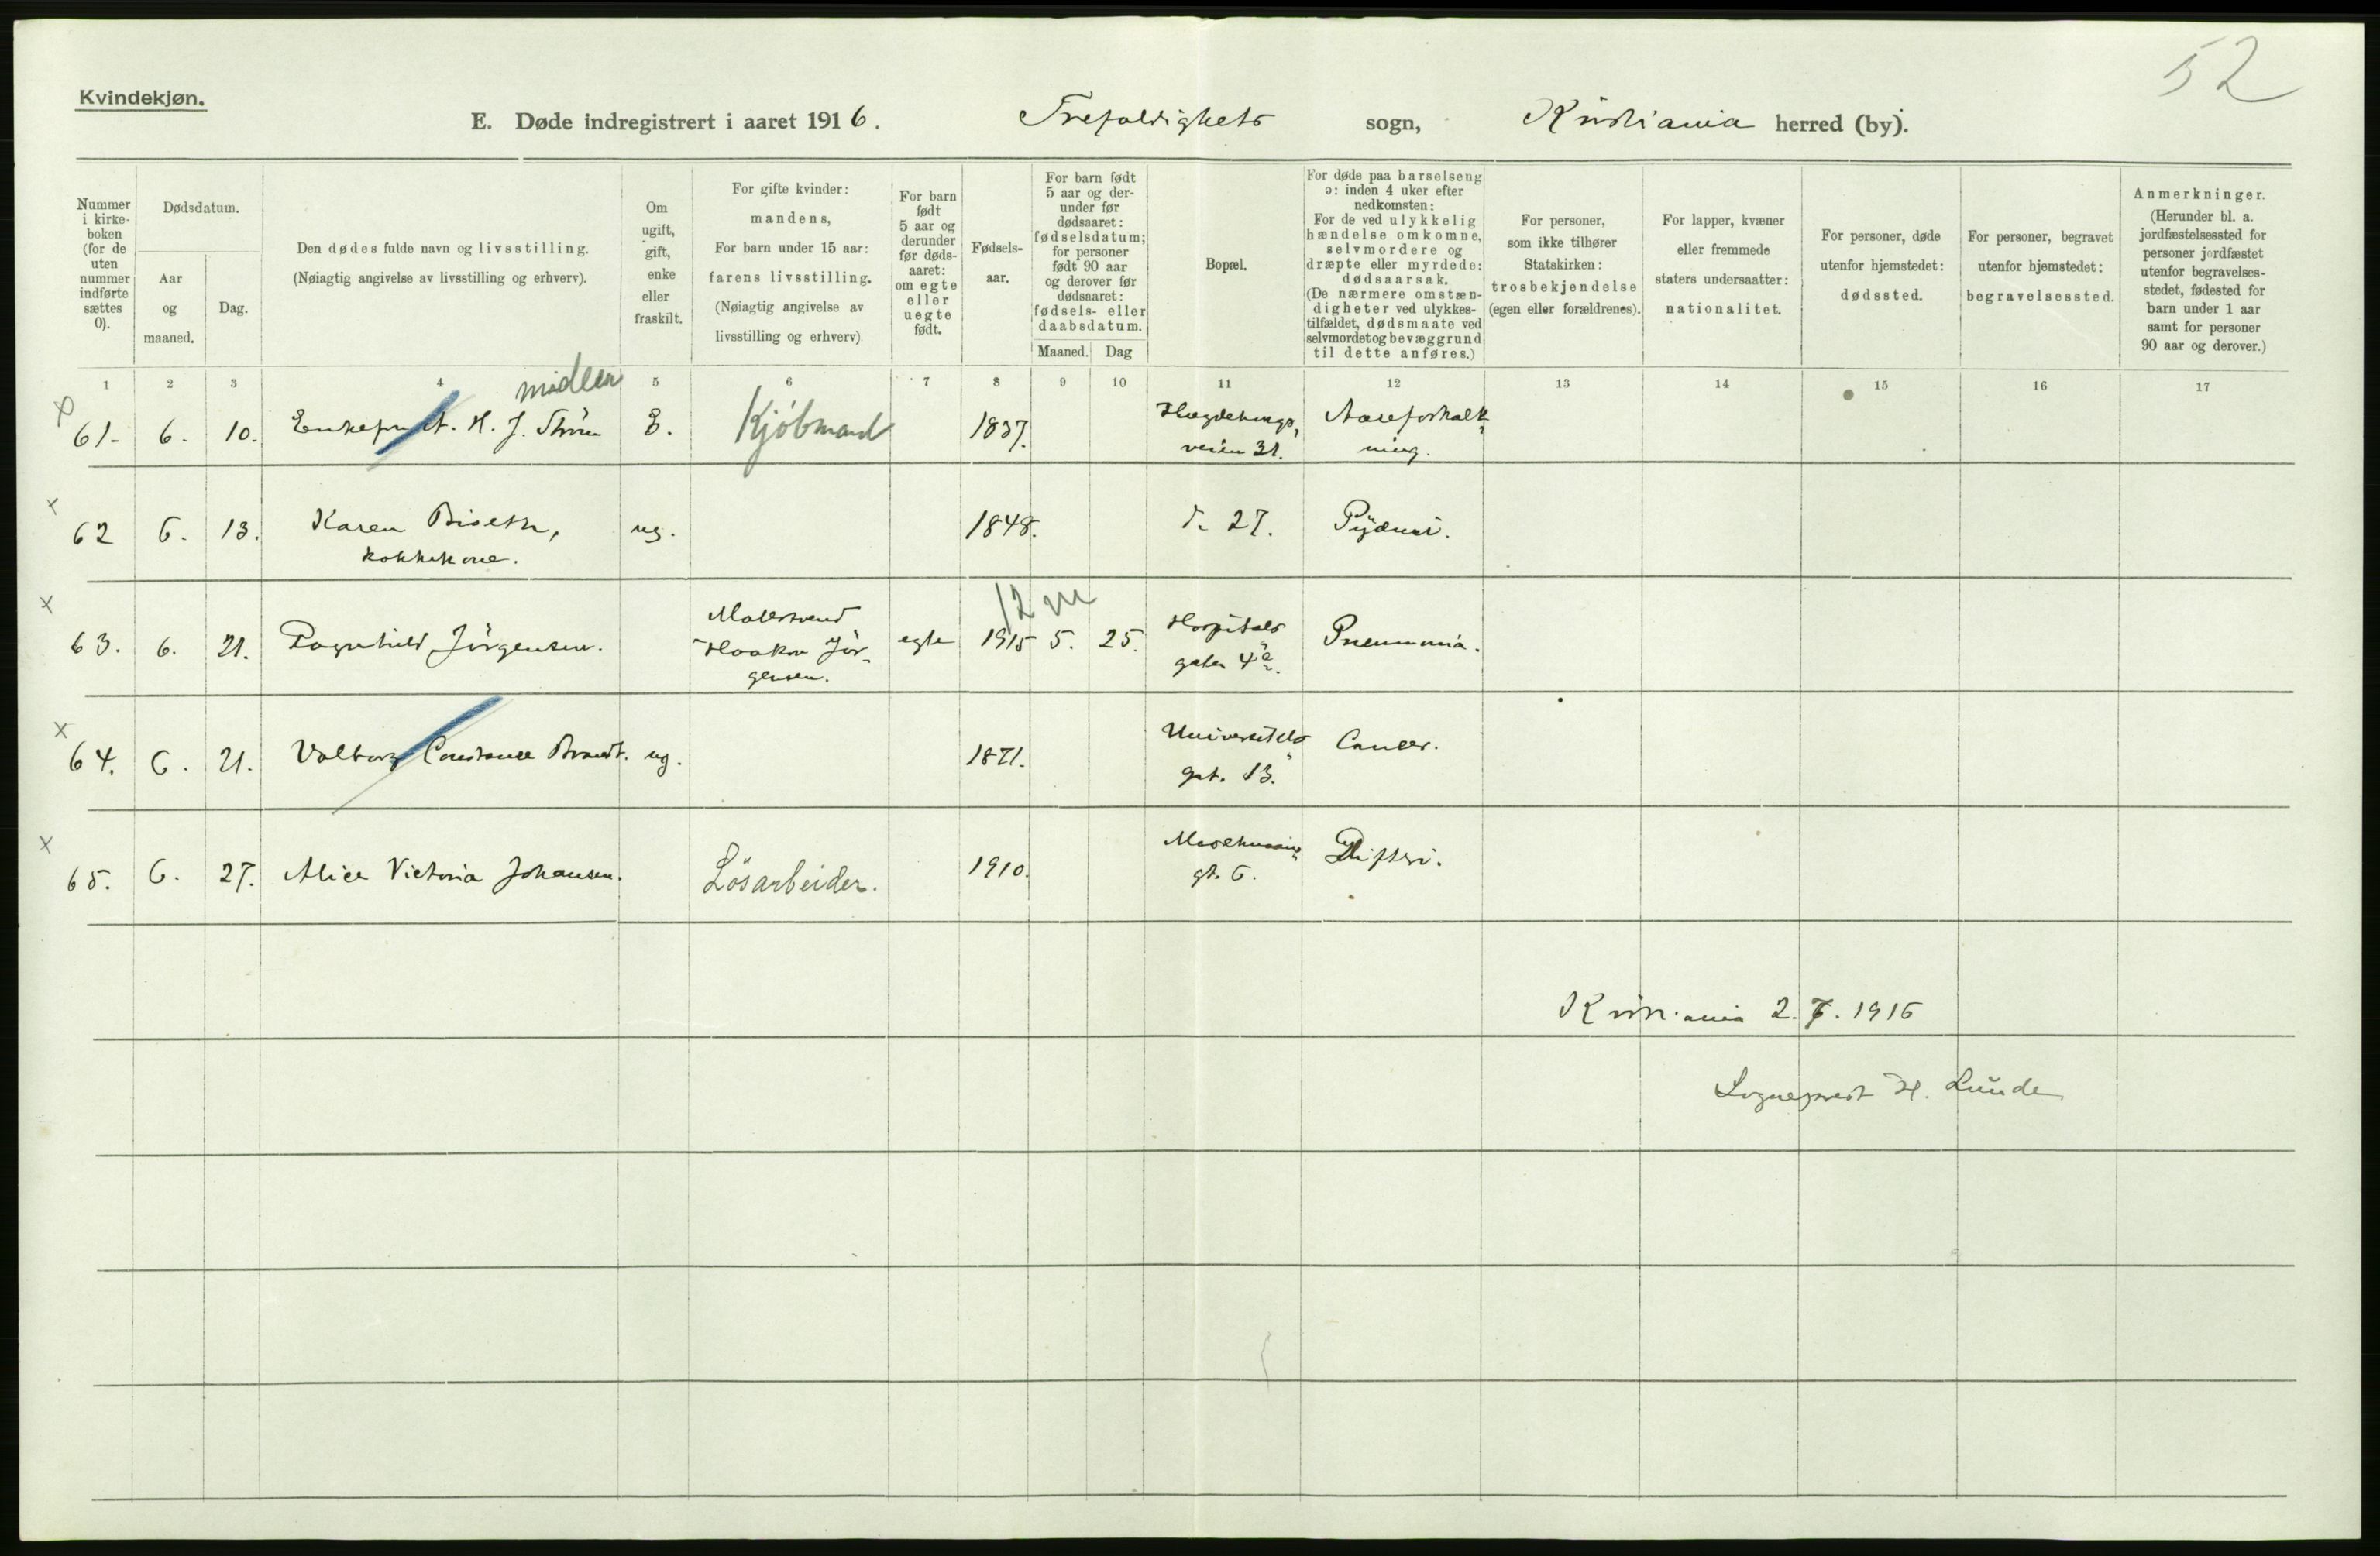 52
Kvindekjøn.
E. Døde indregistrert i aaret 1916. Trefoldighets sogn, Kristiania herred (by).
Nummer
i kirke-
boken
(for de
uten
nummer
indførte
sættes
0).
Dødsdatum.
Aar
og
maaned.
Dag.
Den dødes fulde navn og livsstilling.
(Nøiagtig angivelse av livsstilling og erhverv).
Om
ugift,
gift,
enke
eller
fraskilt.
For gifte kvinder:
mandens,
For barn under 15 aar:
farens livsstilling.
(Nøiagtig angivelse av
livsstilling og erhverv)
For barn
født
5 aar og
derunder
før døds-
aaret:
om egte
eller
uegte
født.
Fødsels-
aar.
For barn født
5 aar og der-
under før
dødsaaret:
fødselsdatum;
for personer
født 90 aar
og derover før
dødsaaret:
fødsels- eller
daabsdatum.
Maaned. Dag
Bopæl.
For døde paa barselseng
ɔ: inden 4 uker efter
nedkomsten:
For de ved ulykkelig
hændelse omkomne,
selvmordere og
dræpte eller myrdede:
dødsaarsak.
(De nærmere omstæn-
digheter ved ulykkes-
tilfældet, dødsmaate ved
selvmordet og bevæggrund
til dette anføres.)
For personer,
som ikke tilhører
Statskirken:
trosbekjendelse
(egen eller forældrenes).
For lapper, kvæner
eller fremmede
staters undersaatter:
nationalitet.
For personer, døde
utenfor hjemstedet:
dødssted.
For personer, begravet
utenfor hjemstedet:
begravelsessted.
Anmerkninger.
(Herunder bl. a.
jordfæstelsessted for
personer jordfæstet
utenfor begravelses-
stedet, fødested for
barn under 1 aar
samt for personer
90 aar og derover.)
1 2 3 4 5 6 7 8 9 10 11 12 13 14 15 16 17
midler
61. 6. 10. H. J. E. Kjöbmand 1837. Hægdehaugs-
veien 31.
Aareforkalk-
ning.
62 6. 13. Karen Biseth,
kokkekone.
ug. 1848. d. 27. Pyämi.
12 m
63. 6. 21. Ragnhild Jörgensen. Malersvend
Haakon Jör-
gensen.
egte 1915 5. 25. Hospitals
gaten 4a.
Pneumonia.
64. 6. 21. Valborg Constance Brandt. ug. 1871. Universitets
gat. 13.
Cancer.
65. 6. 27. Alice Victoria Johansen. Lösarbeider. 1910. gt. 6. Difteri.
Kristiania 2.7.1916
Sogneprest H. Lunde